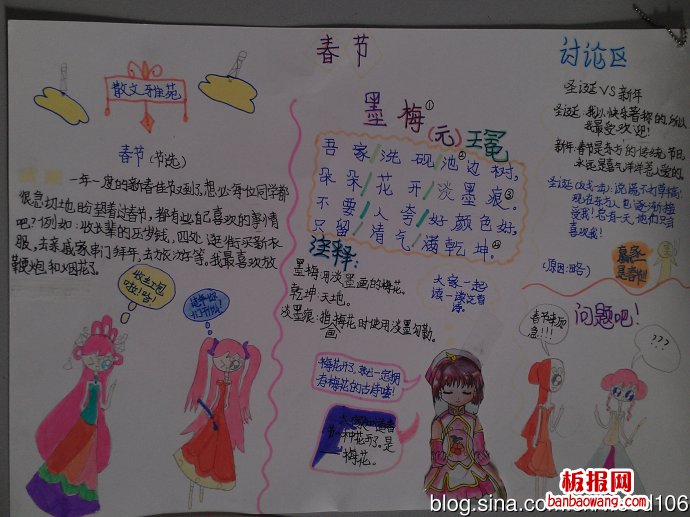 春节
散文雅苑
春节(节选)
一年一度的新春佳节又到了,想必每位同学都
很急切地盼望着过春节,都有些自己喜欢的事情
吧?例如:收大笔的压岁钱,四处逛街买新衣
服,去亲戚家串门拜年,去旅游等。我最喜欢放
鞭炮和烟花了。
收红包
啦!哈!
墨梅①
(元)王冕
吾家洗砚池边树,②
朵朵花开淡墨痕。③
不要人夸好颜色好,
只留清气满乾坤。④
注释:
墨梅:用淡墨画的梅花。
乾坤:天地。
淡墨痕:指画梅花时使用淡墨勾勒。
大家一起
读一读
梅花开了,就一定拥
有梅花的古诗喽!
一种花开了。是
梅花。
讨论区
圣诞VS新年
圣诞:我以快乐著称的,所以
我最受欢迎!
新年:春节是东方的传统节日,
永远是喜气洋洋惹人爱的。
圣诞(反击):说属不对草稿:
现在东方人也逐渐接
受我!总有一天,他们只会
喜欢我!
(原因:略)
赢家
是春节!
问题吧!
春节来历
是!!!
???
板报网
banbaowang.com
blog.sina.com
d106